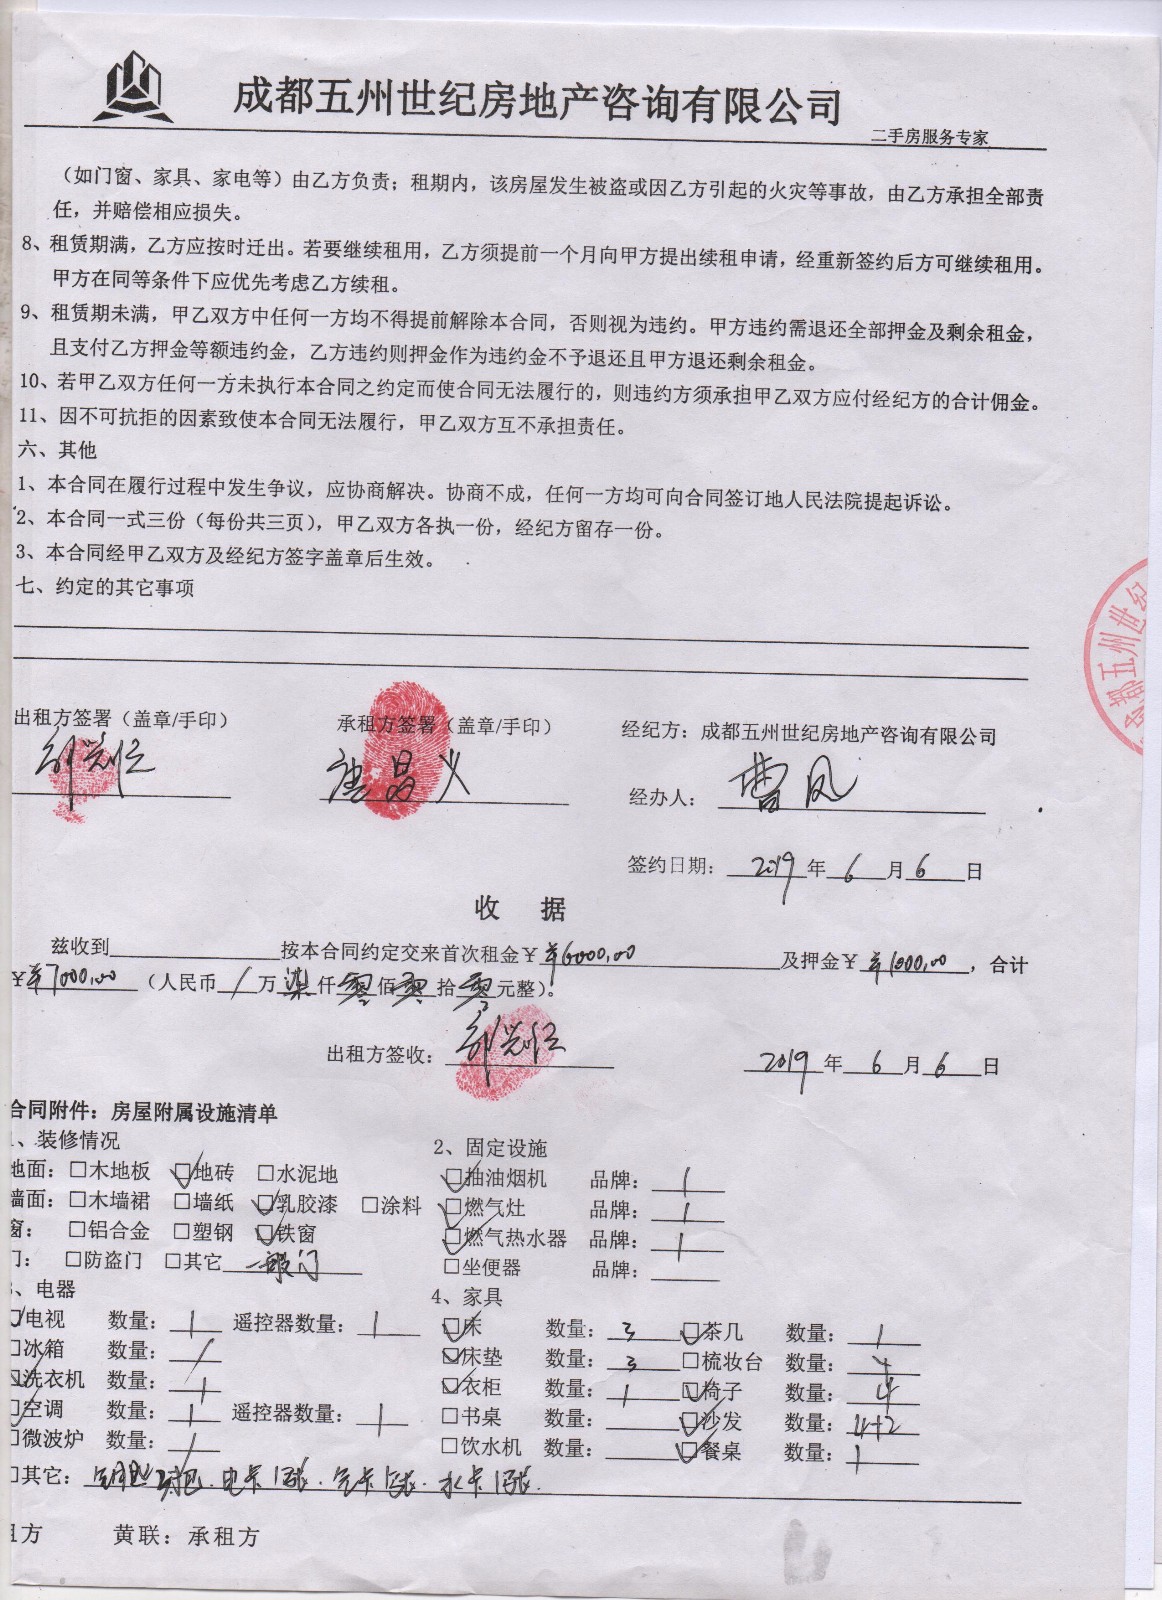 成都五州世纪房地产咨询有限公司
二手房服务专家
（如门窗、家具、家电等）由乙方负责；租期内，该房屋发生被盗或因乙方引起的火灾等事故，由乙方承担全部责
任，并赔偿相应损失。
8、租赁期满，乙方应按时迁出。若要继续租用，乙方须提前一个月向甲方提出续租申请，经重新签约后方可继续租用。
甲方在同等条件下应优先考虑乙方续租。
9、租赁期未满，甲乙双方中任何一方均不得提前解除本合同，否则视为违约。甲方违约需退还全部押金及剩余租金，
且支付乙方押金等额违约金，乙方违约则押金作为违约金不予退还且甲方退还剩余租金。
10、若甲乙双方任何一方未执行本合同之约定而使合同无法履行的，则违约方须承担甲乙双方应付经纪方的合计佣金。
11、因不可抗拒的因素致使本合同无法履行，甲乙双方互不承担责任。
六、其他
1、本合同在履行过程中发生争议，应协商解决。协商不成，任何一方均可向合同签订地人民法院提起诉讼。
2、本合同一式三份（每份共三页），甲乙双方各执一份，经纪方留存一份。
3、本合同经甲乙双方及经纪方签字盖章后生效。
七、约定的其它事项
都五州世纪
出租方签署（盖章/手印） 承租方签署（盖章/手印） 经纪方：成都五州世纪房地产咨询有限公司
唐昌义 经办人：曹凤
签约日期：2019年6月6日
收 据
兹收到 按本合同约定交来首次租金￥¥6000.00 及押金￥¥1000.00，合计
￥¥7000.00（人民币/万柒仟零佰零拾零元整）。
出租方签收： 2019年6月6日
合同附件：房屋附属设施清单
、装修情况 2、固定设施
地面：□木地板 ☑地砖 □水泥地 ☑抽油烟机 品牌：1
墙面：□木墙裙 □墙纸 ☑乳胶漆 □涂料 ☑燃气灶 品牌：1
窗：□铝合金 □塑钢 ☑铁窗 ☑燃气热水器 品牌：1
门：□防盗门 □其它 一般门 □坐便器 品牌：
、电器 4、家具
☑电视 数量：1 遥控器数量：1 ☑床 数量：3 ☑茶几 数量：1
□冰箱 数量：/ ☑床垫 数量：3 □梳妆台 数量：
☑洗衣机 数量：1 ☑衣柜 数量：1 ☑椅子 数量：4
☑空调 数量：1 遥控器数量：1 □书桌 数量： ☑沙发 数量：4+2
□微波炉 数量：/ □饮水机 数量： ☑餐桌 数量：1
□其它： 电卡1张．气卡1张．水卡1张．
租方 黄联：承租方